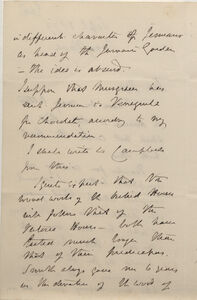 indifferent character of Jenman
as head of the Jamaica Garden
– the idea is absurd.
I suppose that Musgrave has
sent Jenman to Venezuela
for Chordal, according to my
recommendation
I shall write to Campbell
for this.
I quite expect that the
wood work of the Orchid Houses
will follow that of the
Palace House — both have
lasted much longer than
that of their predecessors
Smith always gave me 10 years
as the duration of the wood of